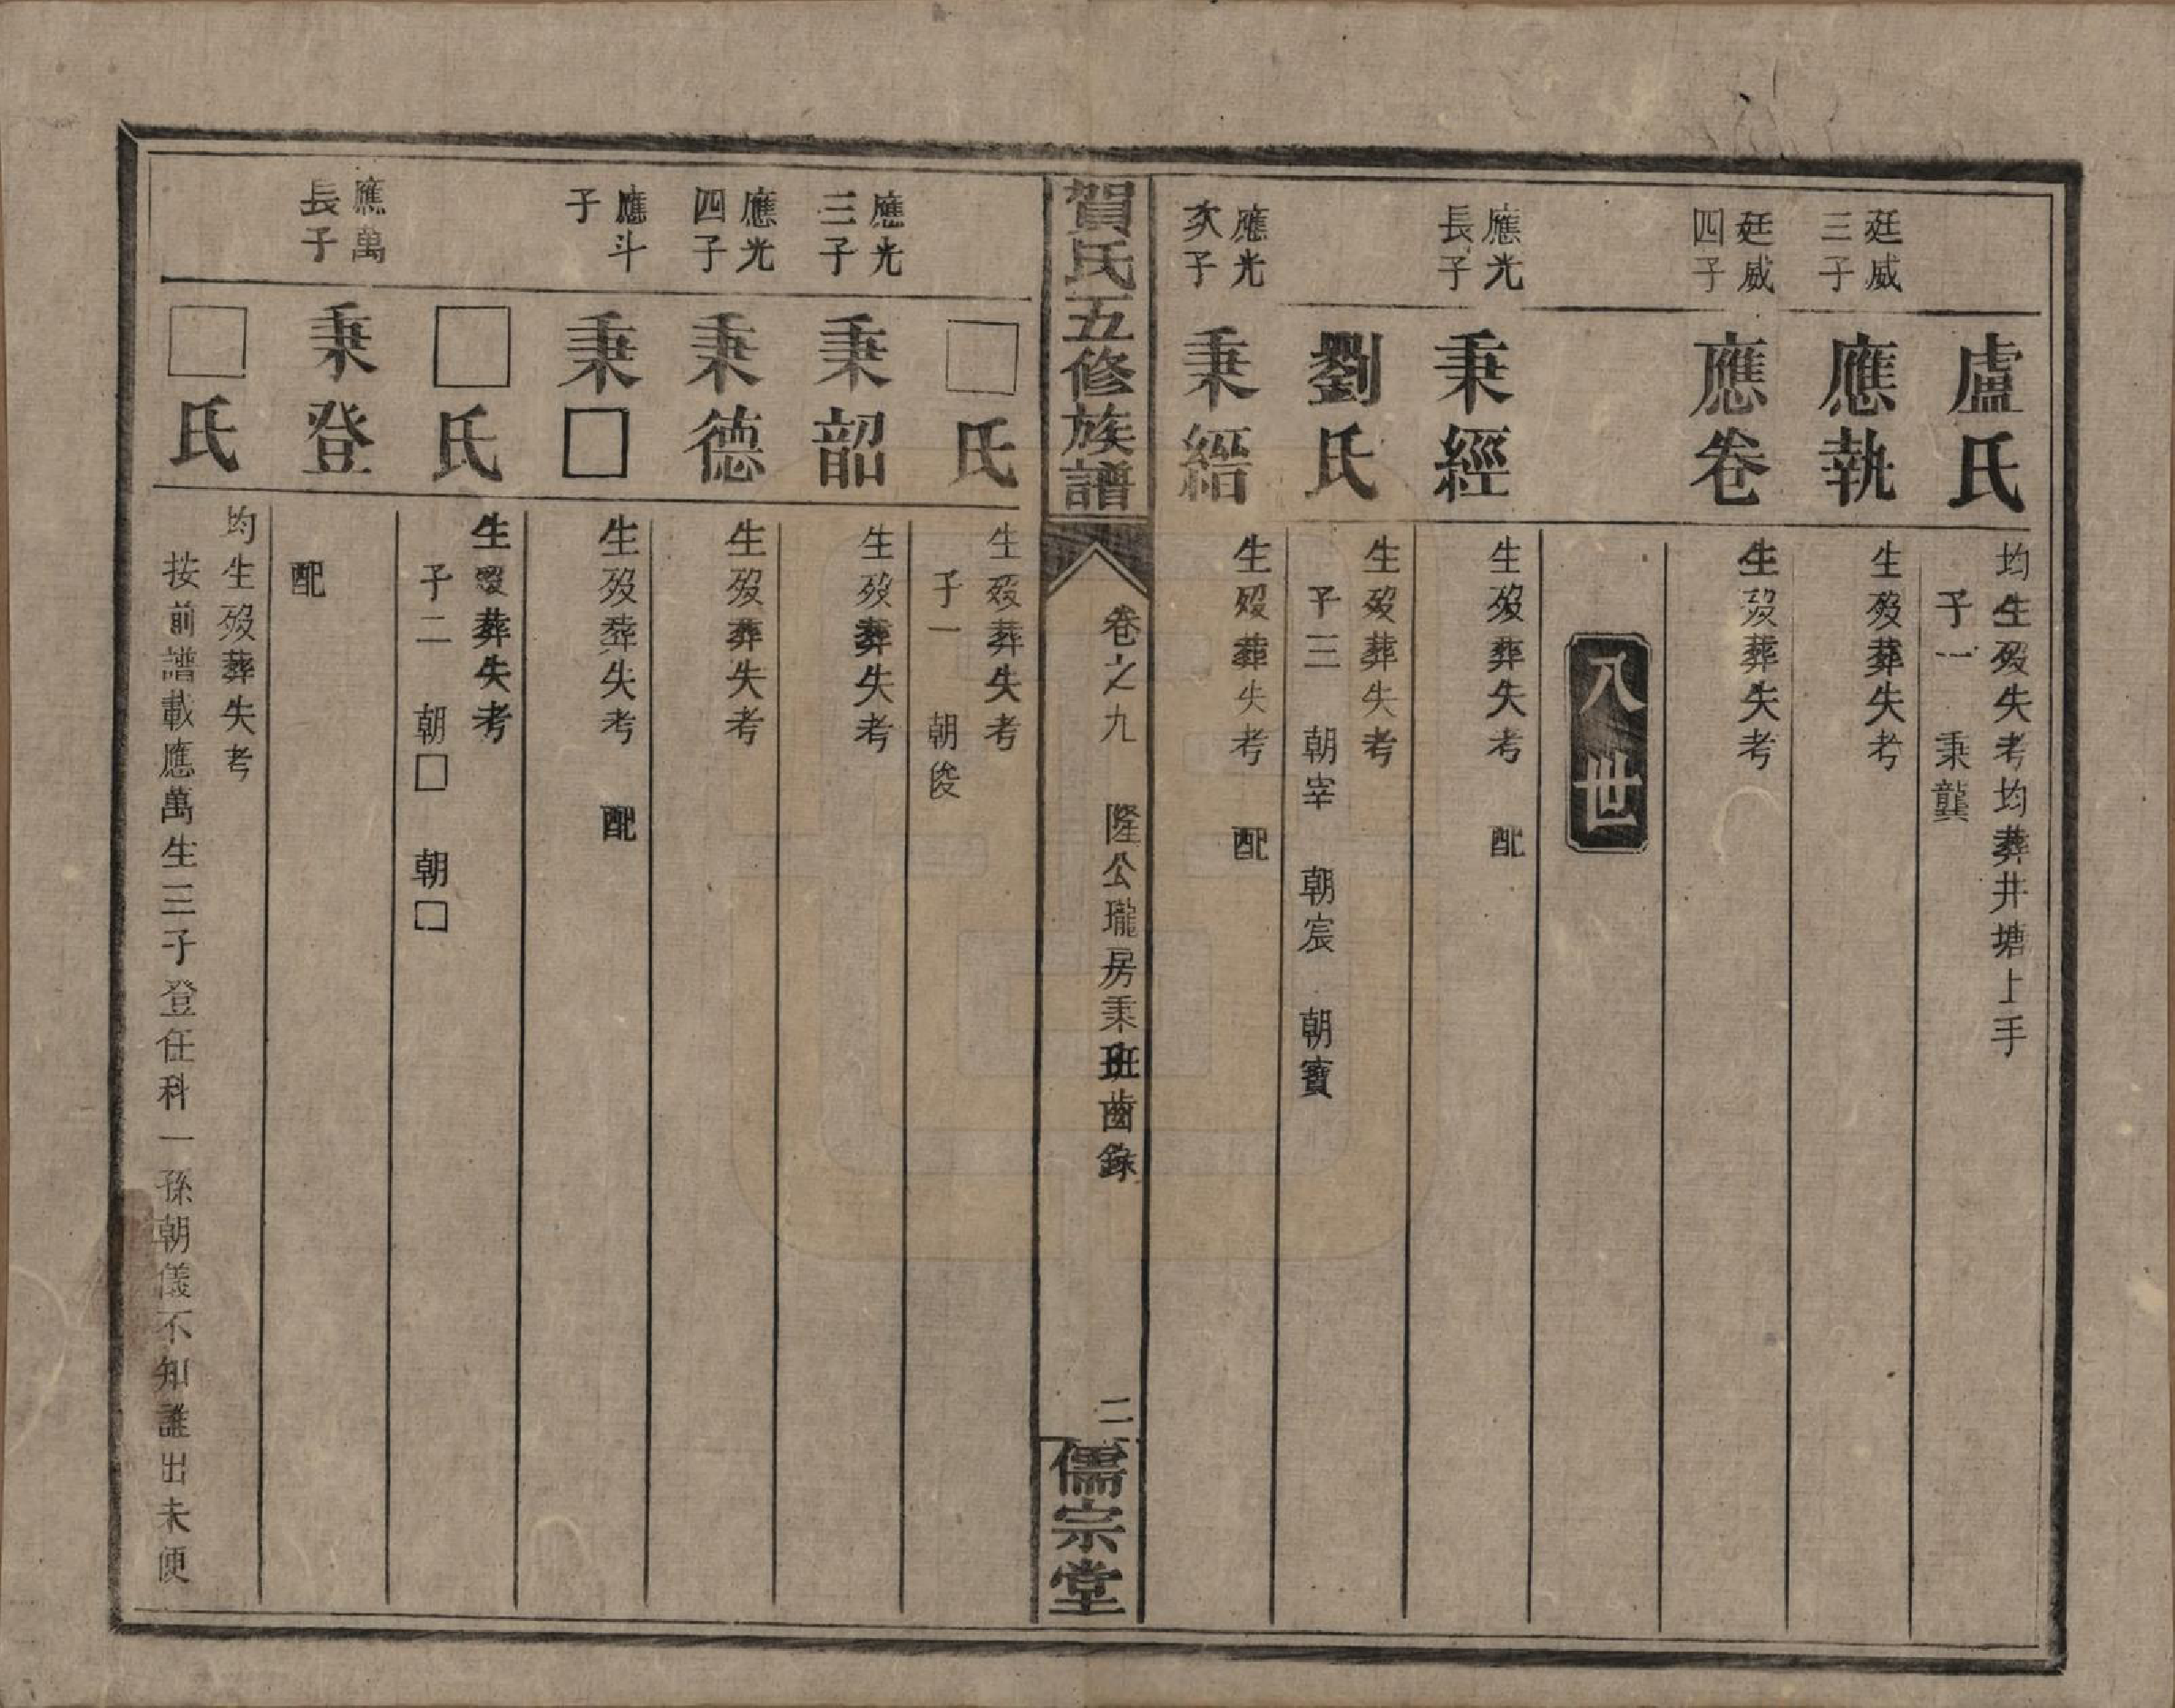 盧氏
均生歿失考均葬井塘上手
子一　秉龔
廷威
三子
應執
生歿葬失考
廷威
四子
應卷
生歿葬失考
八世
應光
長子
秉經
生歿葬失考　配
劉氏
生歿葬失考
子三　朝宰　朝宸　朝寶
應光
次子
秉縉
生歿葬失考　配
賀氏五修族譜
卷之九　隆公瓏房秉班齒錄
二
儒宗堂
□氏
生歿葬失考
子一　朝俊
應光
三子
秉韶
生歿葬失考
應光
四子
秉德
生歿葬失考
應斗
子
秉□
生歿葬失考　配
□氏
生歿葬失考
子二　朝□　朝□
應萬
長子
秉登
配
□氏
均生歿葬失考
按前譜載應萬生三子登任科一孫朝儀不知誰出未便